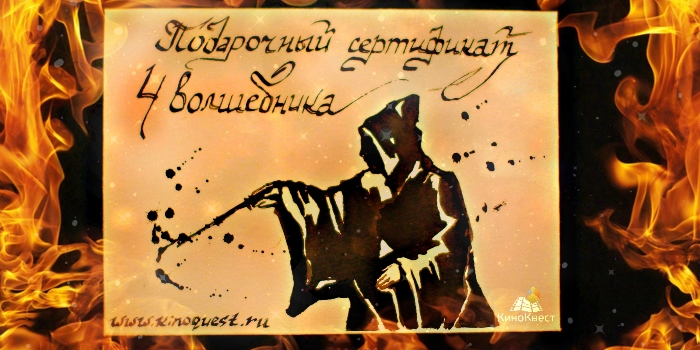 Подарочный сертификат
4 волшебника
www.kinoquest.ru
КиноКвест